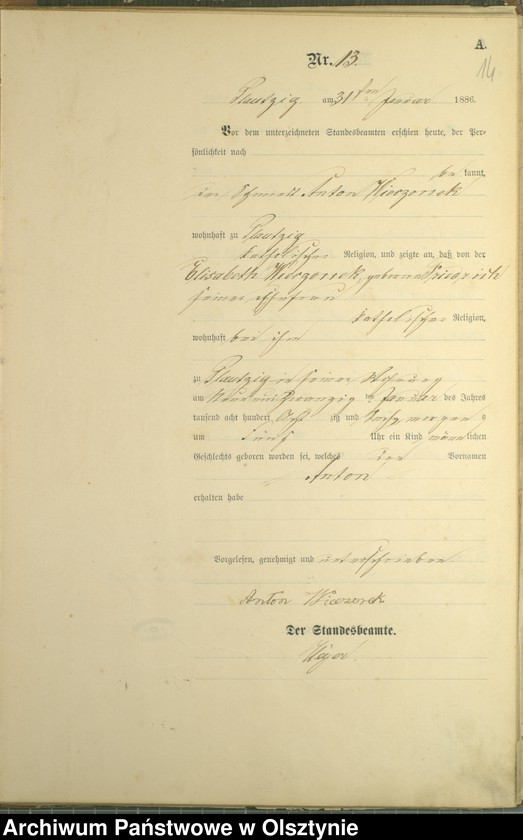 A.
14
Nr. 13.
Plautzig am 31ten Januar 1886.
Vor dem unterzeichneten Standesbeamten erschien heute, der Per-
sönlichkeit nach
be kannt,
der Schmidt Anton Wieczorrek
wohnhaft zu Plautzig
katholischer Religion, und zeigte an, daß von der
Elisabeth Wieczorrek, geborene
seiner Ehefrau
katholischer Religion,
wohnhaft bei ihm
zu Plautzig in seiner Wohnung
am Neunundzwanzig ten Januar des Jahres
tausend acht hundert Acht zig und Sechs morgens
um fünf Uhr ein Kind männlichen
Geschlechts geboren worden sei, welches den Vornamen
Anton
erhalten habe
Vorgelesen, genehmigt und unterschrieben
Anton Wieczorek
Der Standesbeamte.
Archiwum Państwowe w Olsztynie